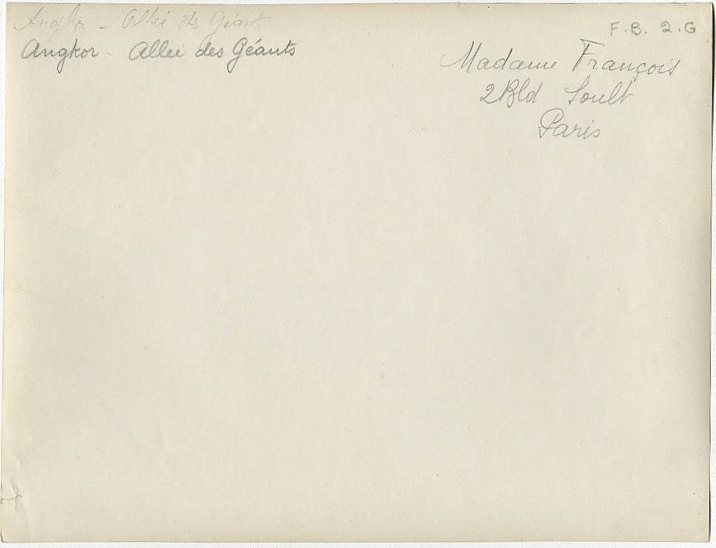 Angkor - Allée des Géants
Angkor - Allée des Géants
F.B. 2.G
Madame François
2 Bld Soult
Paris